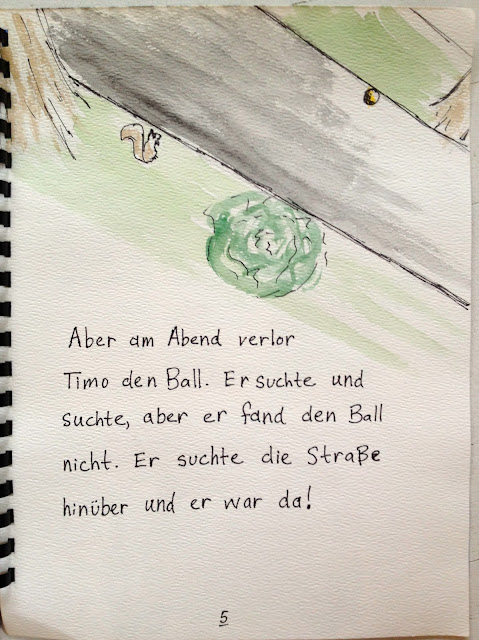 Aber am Abend verlor
Timo den Ball. Er suchte und
suchte, aber er fand den Ball
nicht. Er suchte die Straße
hinüber und er war da!
5